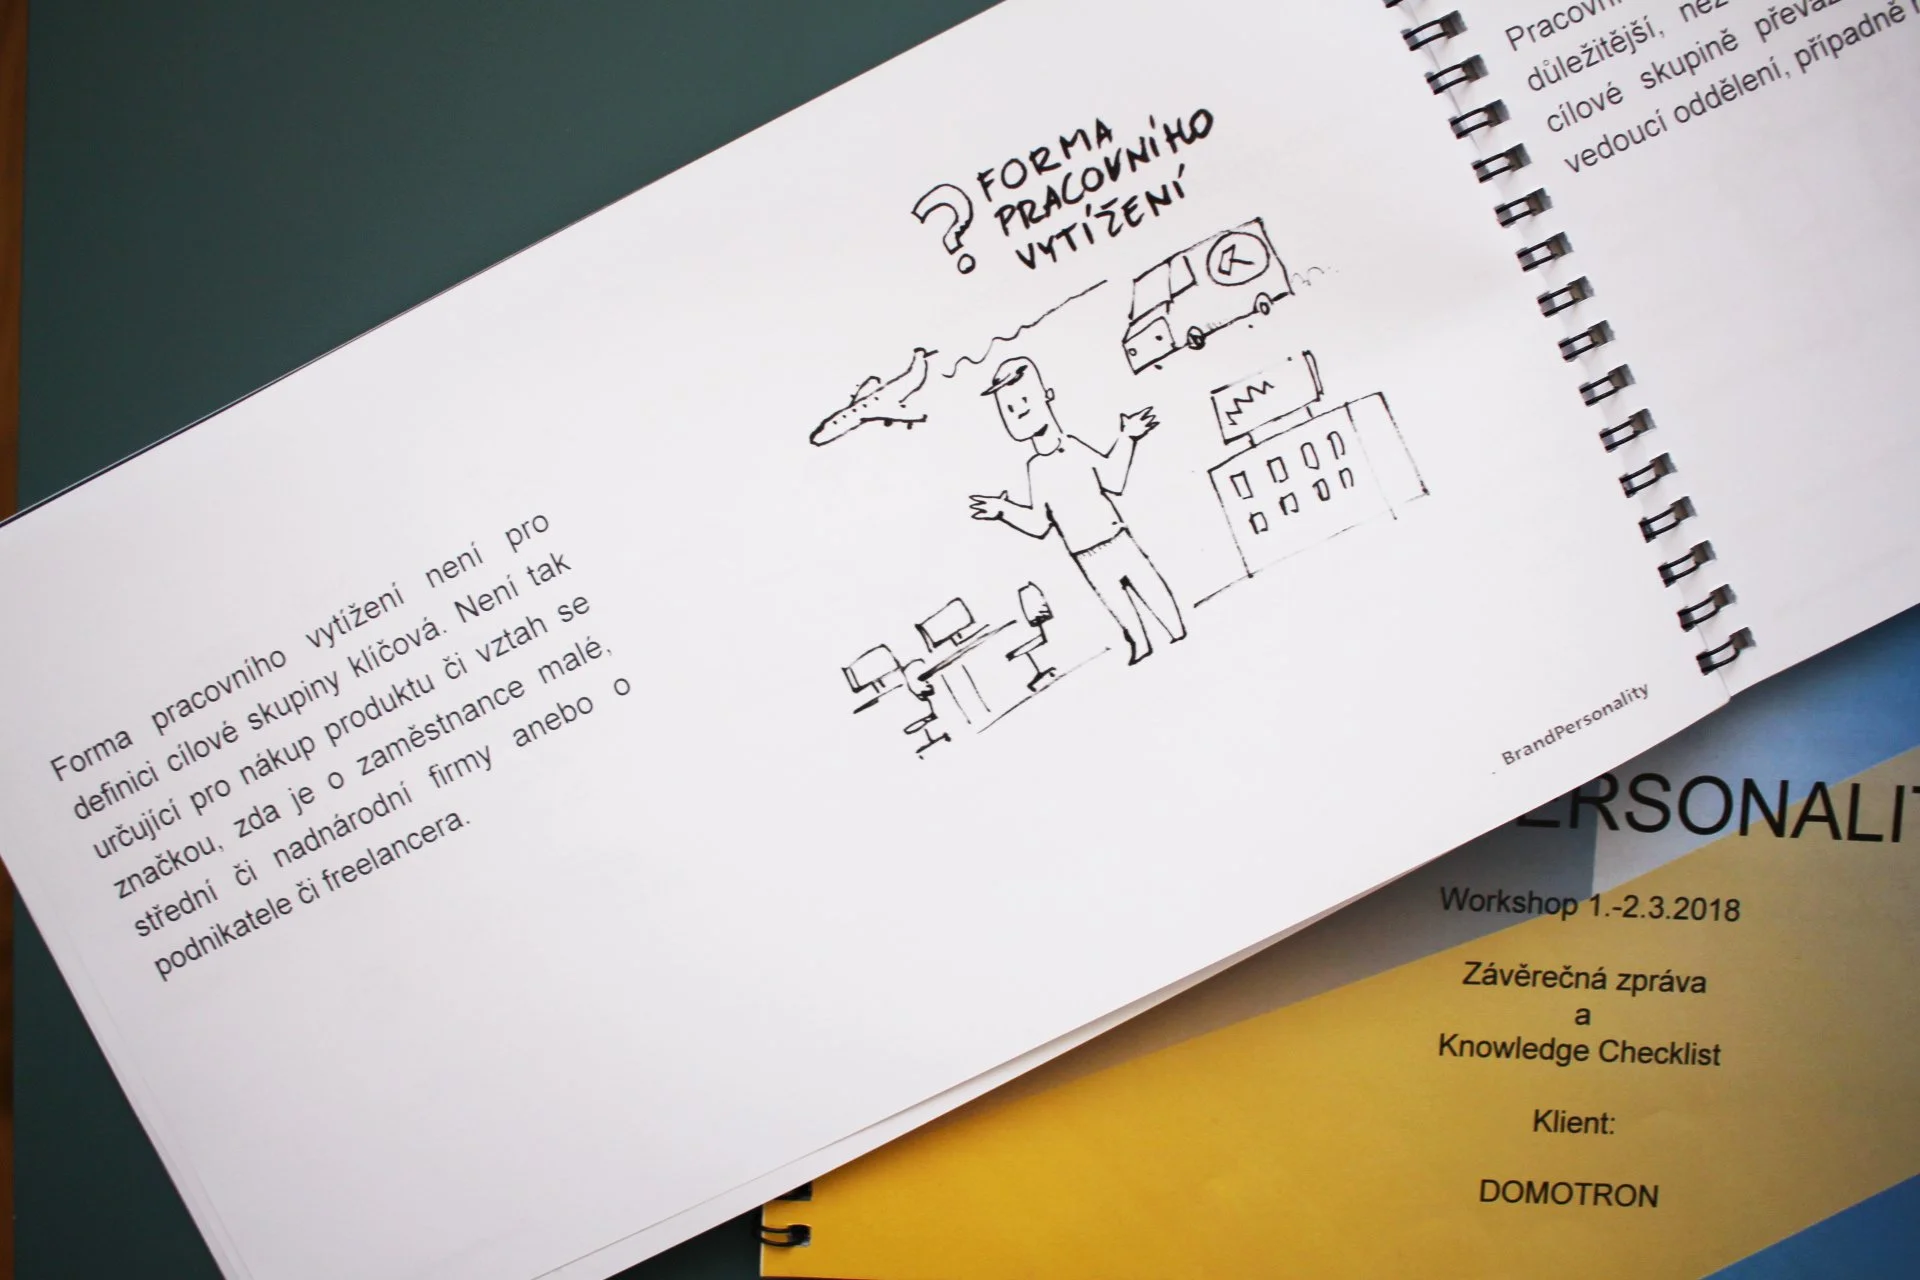 ? FORMA
PRACOVNÍHO
VYTÍŽENÍ
Forma pracovního vytížení není pro
definici cílové skupiny klíčová. Není tak
určující pro nákup produktu či vztah se
značkou, zda je o zaměstnance malé,
střední či nadnárodní firmy anebo o
podnikatele či freelancera.
BrandPersonality
důležitější, než
cílové skupině
vedoucí oddělení, případně
Workshop 1.-2.3.2018
Závěrečná zpráva
a
Knowledge Checklist
Klient:
DOMOTRON